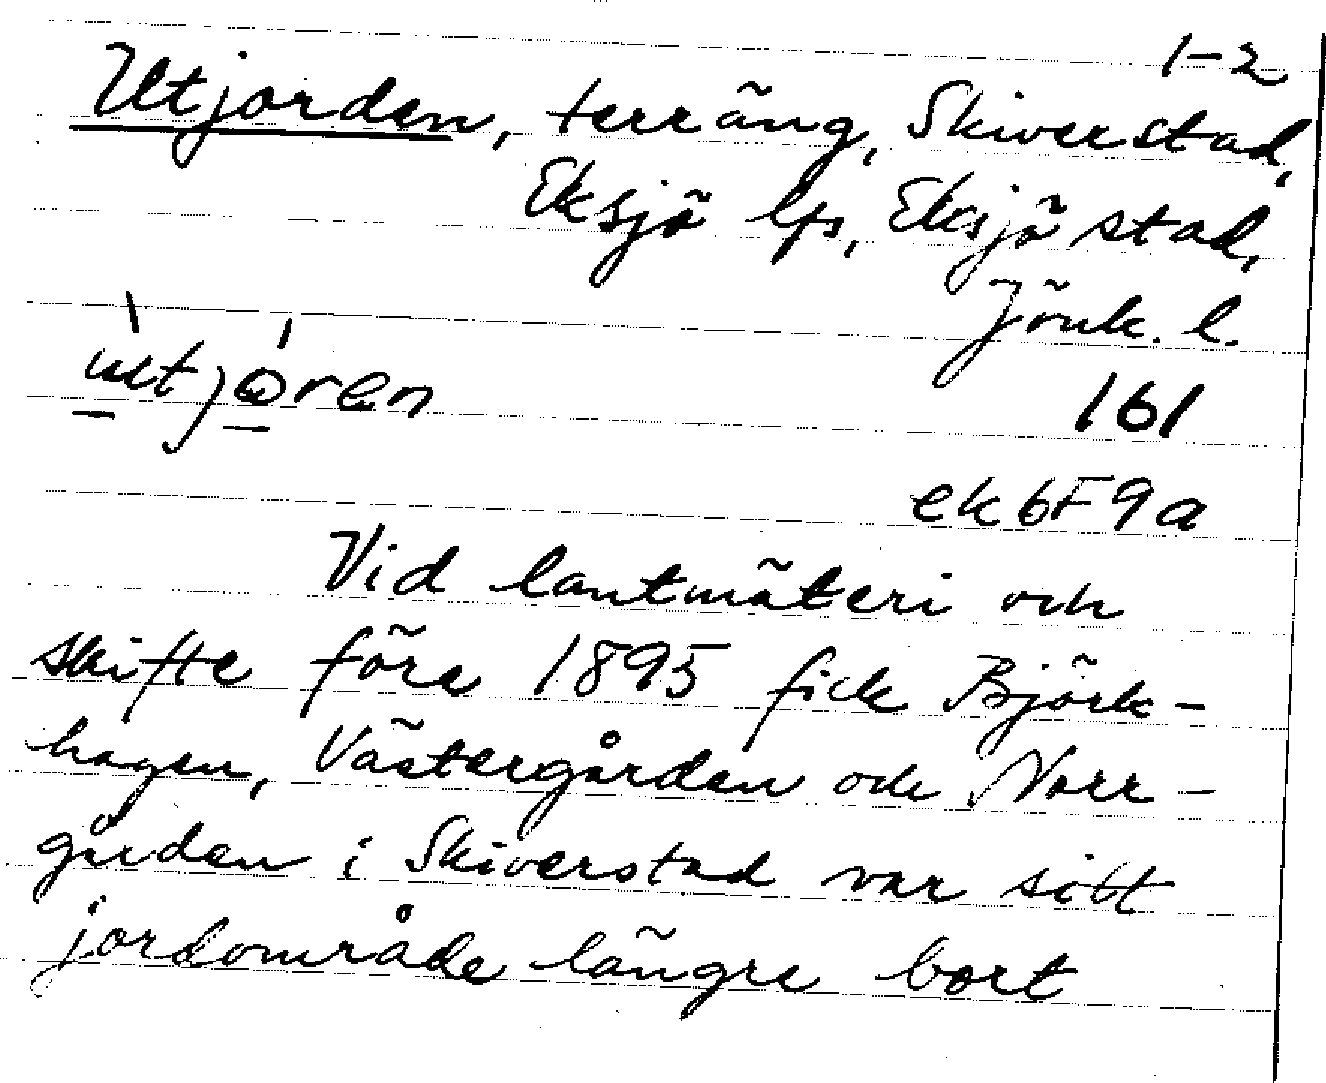 1-2
Utjorden, terräng, Skiverstad,
Eksjö lfs, Eksjö stad,
Jönk. l.
ùtjǿren
161
ek6F9a
Vid lantmäteri och
skifte före 1895 fick Björk-
hagen, Västergården och Norr-
gården i Skiverstad var sitt
jordområde längre bort